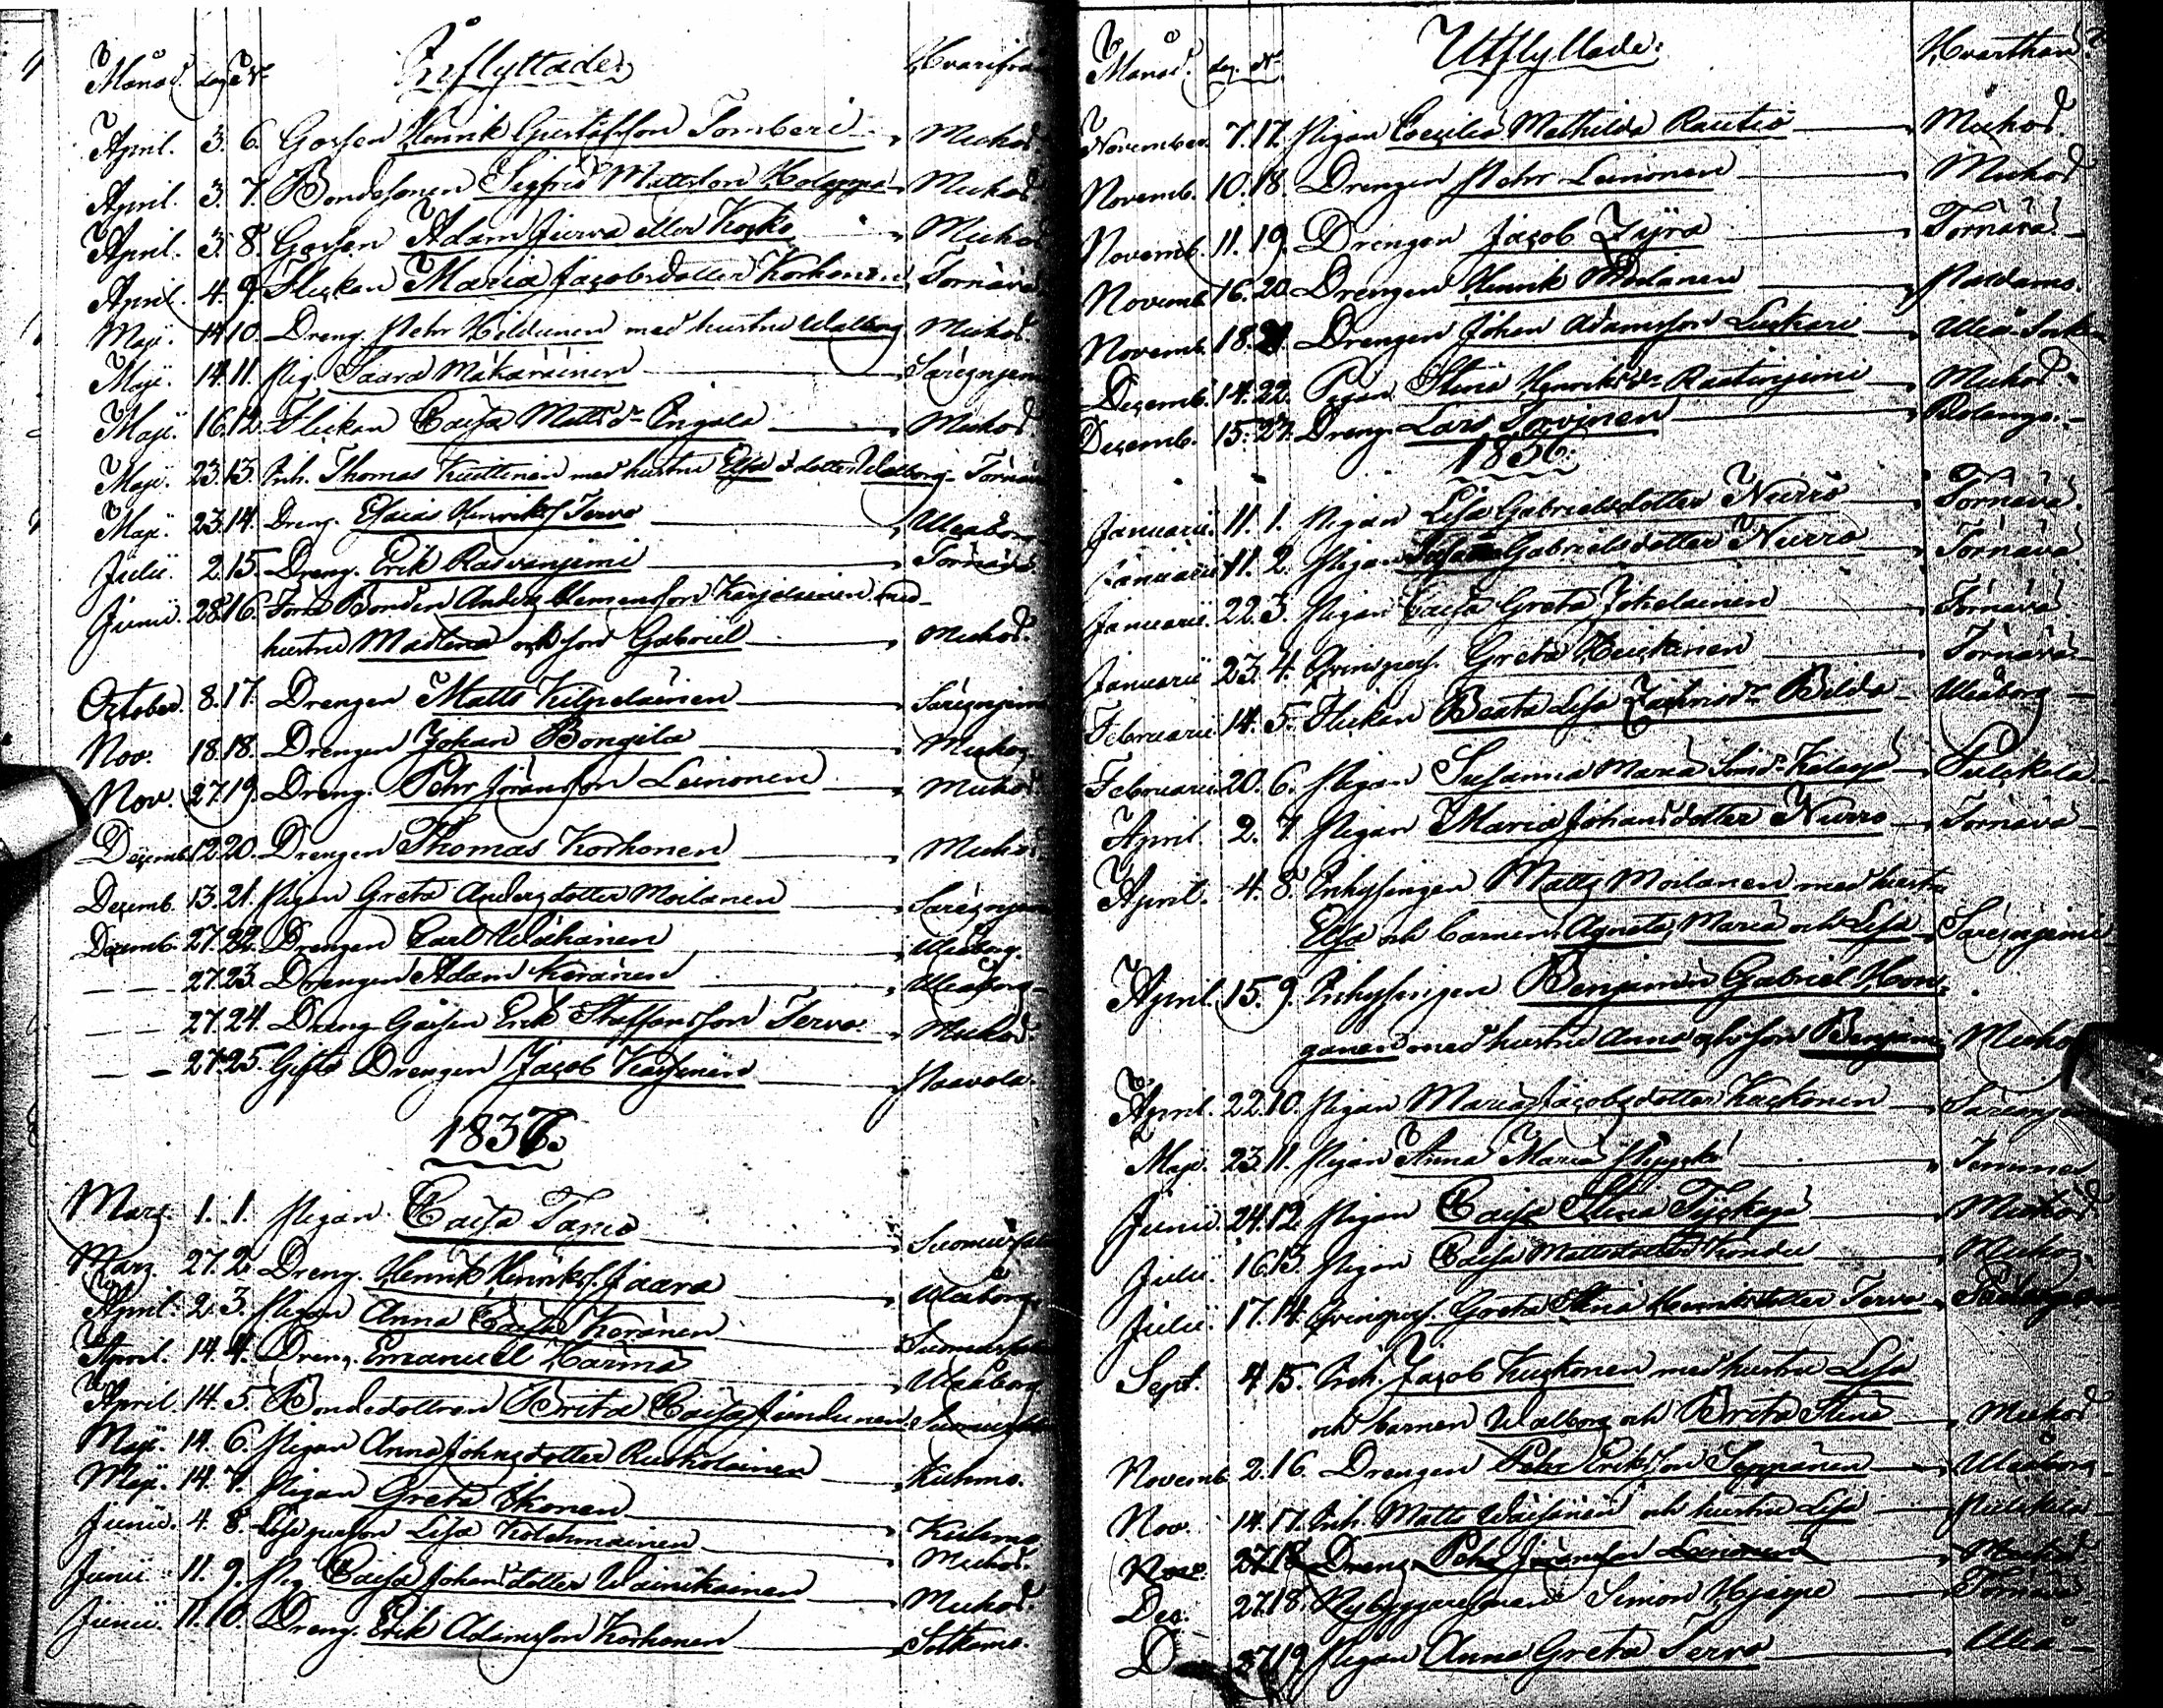 Månad. dag. N:o Inflyttade: Hvarifrån
April. 3. 6. Gossen Henrik Gustafsson Tomberi Muhos
April. 3. 7. Bondesonen Sigfrid Mattsson Holappa Muhos
April. 3. 8. Gossen Adam Jurva eller Kosko Muhos
April. 4. 9. Flickan Maria Jacobsdotter Korhonen Törnävä
Maji. 14. 10. Dreng. Pehr Hildunen med hustru Walborg Muhos.
Maji. 14. 11. Pig. Saara Mäkäräinen Säresnjemi
Maji. 16. 12. Flickan Caisa Mattsdr Pngala Muhos.
Maji. 23. 13. Inh. Thomas Kusttinen med hustru Elsa o dotter Walborg Törnävä
Maji. 23. 14. Dreng. Esaias Henriks. Tervo Uleåborg
Julii. 2. 15. Dreng. Erik Rasvanjemi Törnävä.
Junii. 28. 16. Förre Bonden Anders Clemensson Karjalainen med
hustru Madlena och son Gabriel Muhos.
October. 8. 17. Drengen Matts Kilpeläinen Säresnjemi
Nov. 18. 18. Drengen Johan Bongila Muhos
Nov. 27. 19. Dreng. Pehr Jöransson Leinonen Muhos.
Decemb. 12. 20. Drengen Thomas Korhonen Muhos
Decemb. 13. 21. Pigan Greta Andersdotter Moilanen Säresnjemi
Decemb. 27. 22. Drengen Carl Wähänen Uleåborg.
— — 27. 23. Drengen Adam Keränen Uleåborg
— — 27. 24. Dreng Gossen Erik Staffansson Tervo. Muhos
— — 27. 25. Gifte Drengen Jacob Karjunen Paavola.
1837.
Mars. 1. 1. Pigan Caisa Tamo Suomus
Mars. 27. 2. Dreng. Henrik Henriks. Jaara Uleåborg
April. 2. 3. Pigan Anna Caisa Keränen Suomus
April. 14. 4. Dreng. Emanuel Harma Uleåborg
April. 14. 5. Bondedottren Brita Caisa Jundunen Suomus
Maji. 14. 6. Pigan Anna Johansdotter Ruskolainen Kuhmo.
Maji. 14. 7. Pigan Greta Ikonen Kuhmo
Junii. 4. 8. Lösa person Lisa Kolehmainen Muhos.
Junii. 11. 9. Pig. Caisa Johansdotter Wainikainen Muhos.
Junii. 11. 10. Dreng. Erik Adamsson Korhonen Sotkamo.
Månad. dag. N:o Utflyttade: Hvarthän
November. 7. 17. Pigan Cecilia Mathilda Rautio Muhos.
Novemb. 10. 18. Drengen Pehr Leinonen Muhos
Novemb. 11. 19. Drengen Jacob Zyra Törnävä
Novemb. 16. 20. Drengen Henrik Moilanen Paldamo.
Novemb. 18. 21. Drengen Johan Adamsson Luckari Uleå Sockn
Decemb. 14. 22. Pigan Stina Henriksdr Rautinjemi Muhos.
Decemb. 15. 23. Dreng. Lars Torvinen Pudasjä.
1836.
Januarii. 11. 1. Pigan Lisa Gabrielsdotter Nurro Törnävä.
Januarii. 11. 2. Pigan Gabrielsdotter Nurro Törnävä
Januarii. 22. 3. Pigan Caisa Greta Jokelainen Törnävä
Januarii. 23. 4. Qvinspers. Greta Heickinen Törnävä
Februarii. 14. 5. Flickan Beata Lisa Zachrisdr Bilda Uleåborg
Februarii. 20. 6. Pigan Susanna Maria Simsdr Kälajä Pulckila
April 2. 7. Pigan Maria Johansdotter Nurro Törnävä
April. 4. 8. Inhysingen Matts Moilanen med hustru
Elsa och barnen Agneta, Maria och Lisa Säresnjemi
April. 15. 9. Inhysingen Benjamin Gabriel Kon-
ganen med hustru Anna och son Benjamin Muhos
April. 22. 10. Pigan Maria Jacobsdotter Kackonen Säresnjemi
Maji. 23. 11. Pigan Anna Maria Pyyskö Temmes
Junii. 24. 12. Pigan Caisa Stina Tyckejä Muhos
Julii. 16. 13. Pigan Caisa Mattsdotter Kondu Muhos.
Julii. 17. 14. Qvinspers. Greta Stina Henriksdotter Tervo
Sept. 4. 15. Inh. Jacob Kuckonen med hustru Lisa
och barnen Walborg och Breta Stina Muhos
Novemb. 2. 16. Drengen Pehr Eriksson Seppänen Uleåborg
Nov. 14. 17. Inh. Matts Wäisänen och hustru Lisa Pulckila
Nov. 27. 18. Dreng. Pehr Jöransson Leinonen Muhos
Dec. 27. 18. Nybyggaresman Simon Hyjeype Törnävä
D 27. 19. Pigan Anna Greta Tervo Uleå